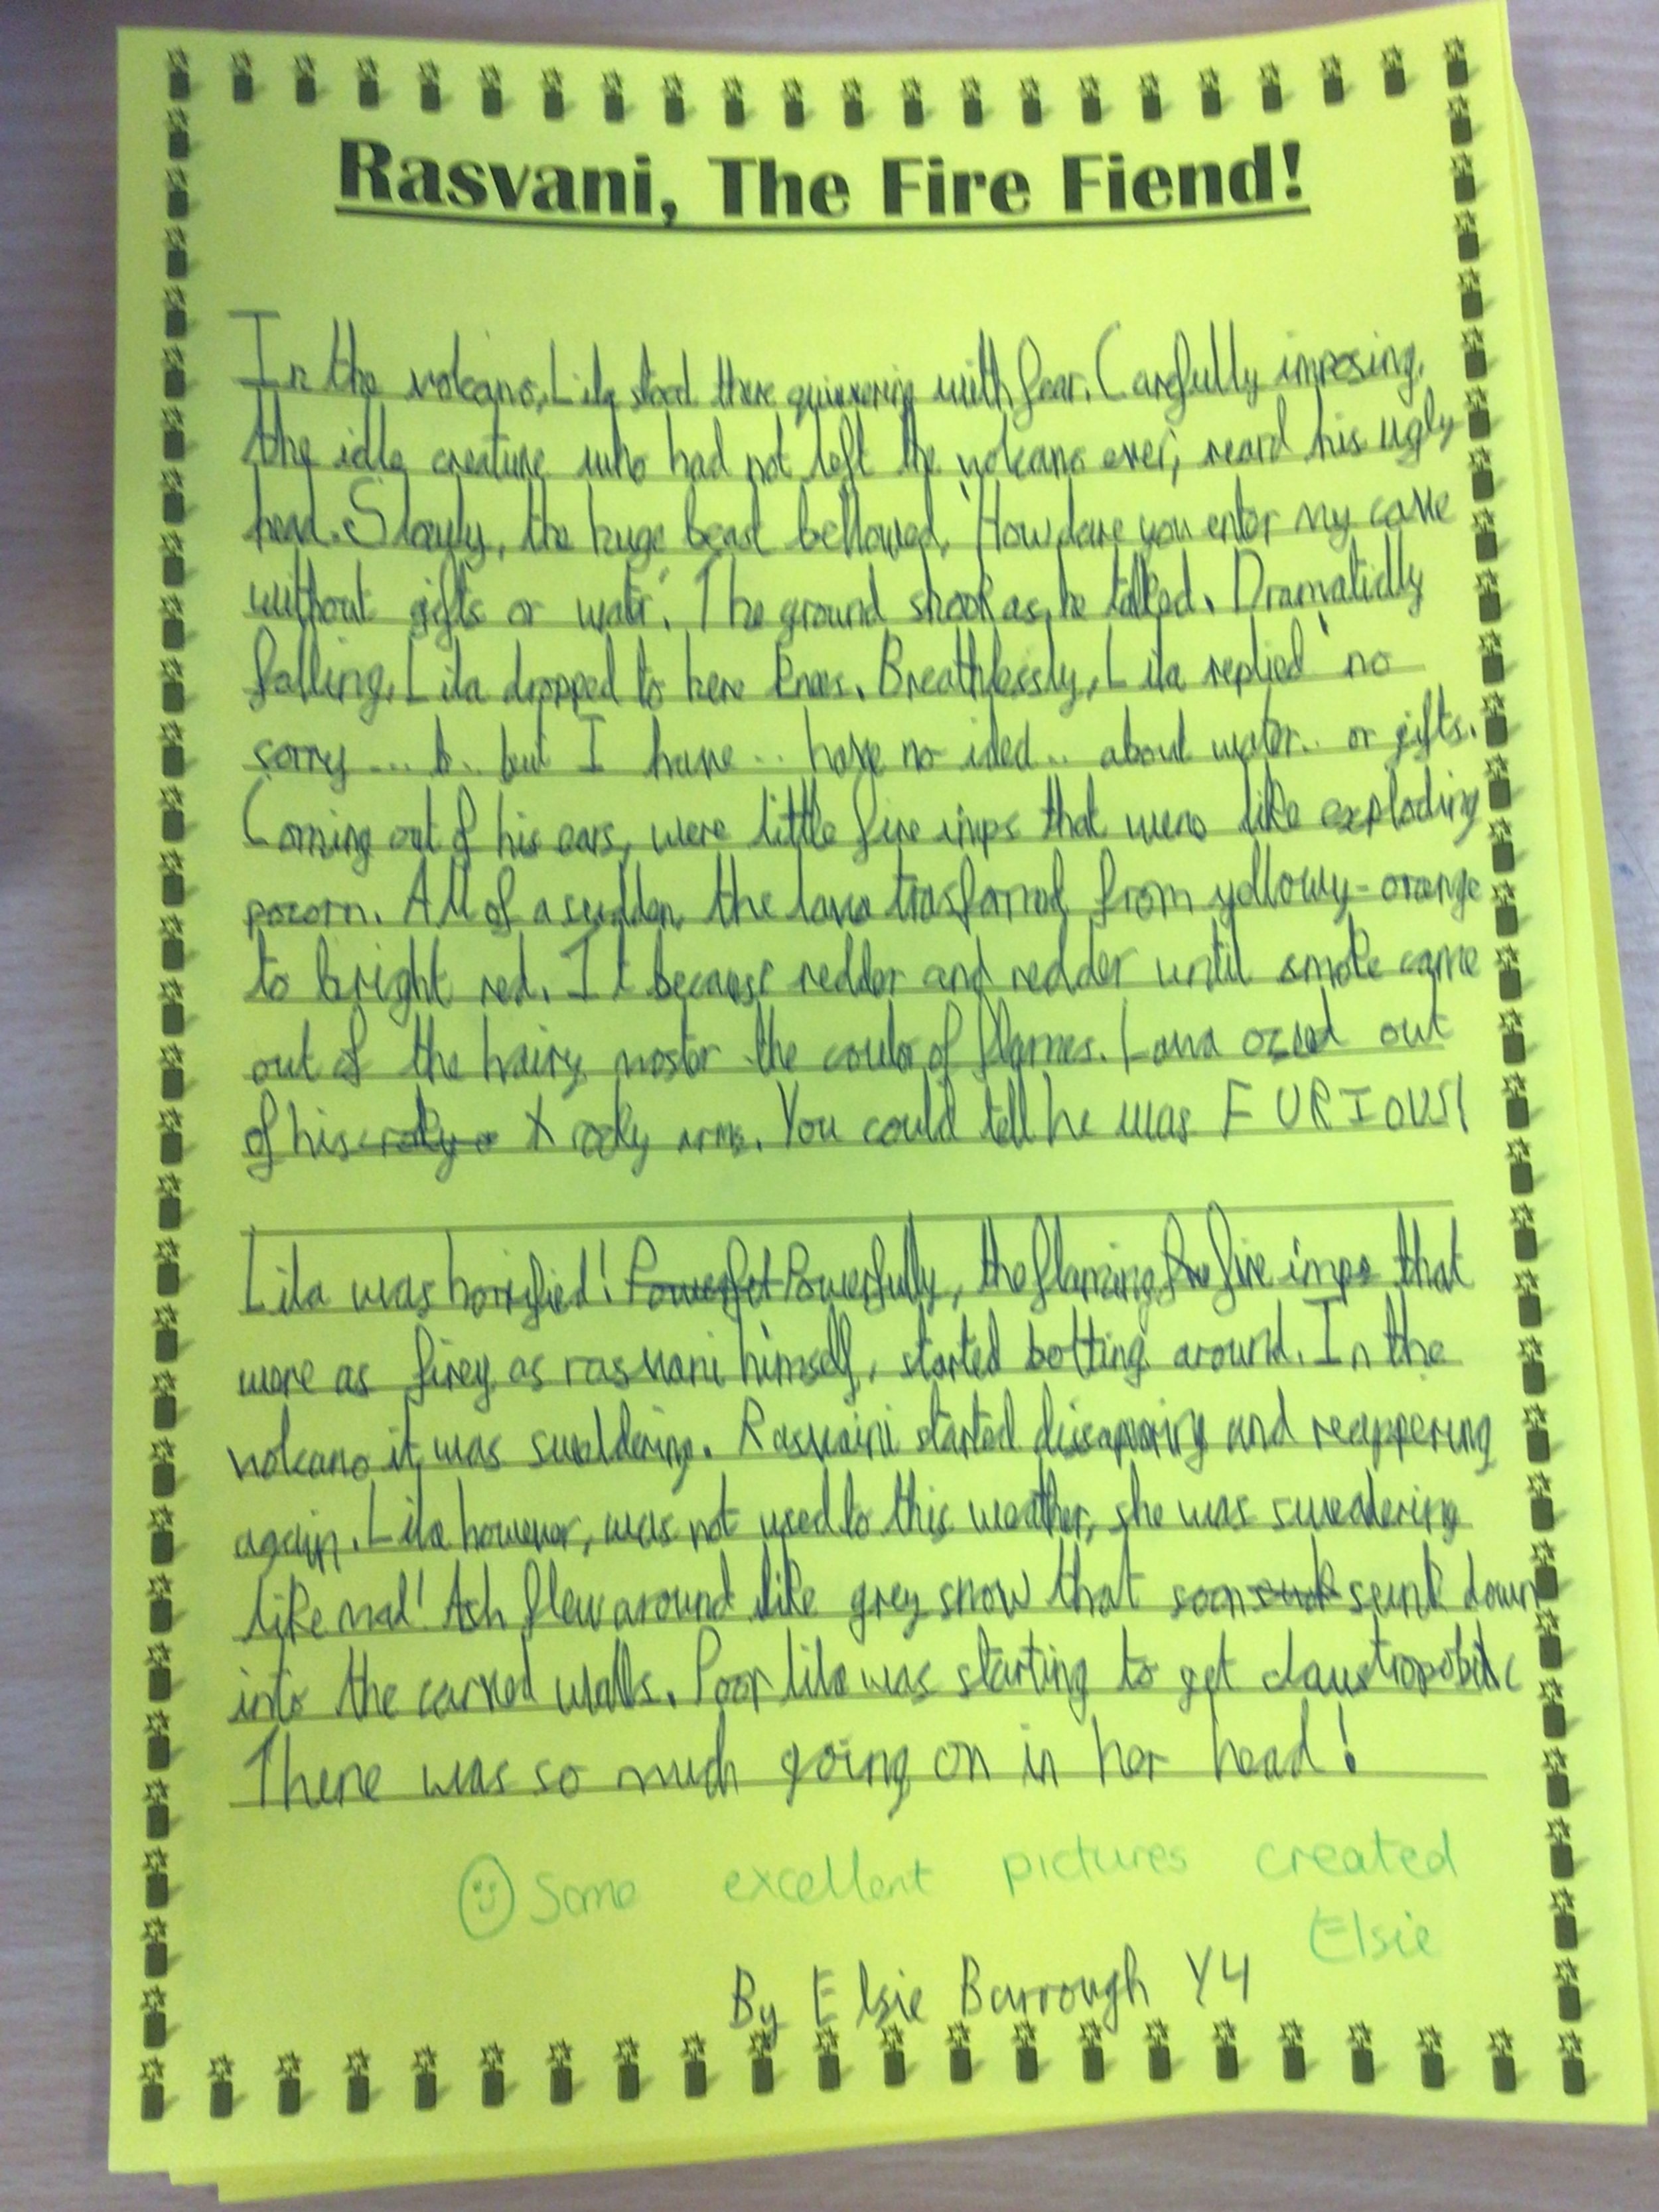 Rasvani, The Fire Fiend!
In the volcano, Lila stood there quivering with fear. Carefully imposing,
the idle creature who had not left the volcano ever, reard his ugly
head. Slowly, the huge beast bellowed, 'How dare you enter my cave
without gifts or watr'. The ground shook as he talked. Dramaticlly
falling, Lila dropped to here knees. Breathlessly, Lila replied 'no
sorry ... b.. but I have ... have no idea... about water... or gifts.
Coming out of his ears, were little fire imps that were like exploding
pocorn. All of a sudden, the lava trasformd from yellowy-orange
to bright red. It because redder and redder until smoke came
out of the hairy moster the coulor of flames. Lava ozed out
of his rocky arms. You could tell he was FURIOUS!
Lila was horrified! Powerfully, the flaming fire imps that
were as firey as rasvani himself, started bolting around. In the
volcano it was sweldering. Rasvaini started dissapering and reappering
again. Lila however, was not used to this weather, she was sweatering
like mad! Ash flew around like grey snow that soon sunk down
into the carved walls. Poor lila was starting to get claustropobic
There was so much going on in her head!
Some excellent pictures created
Elsie
By Elsie Barrough Y4